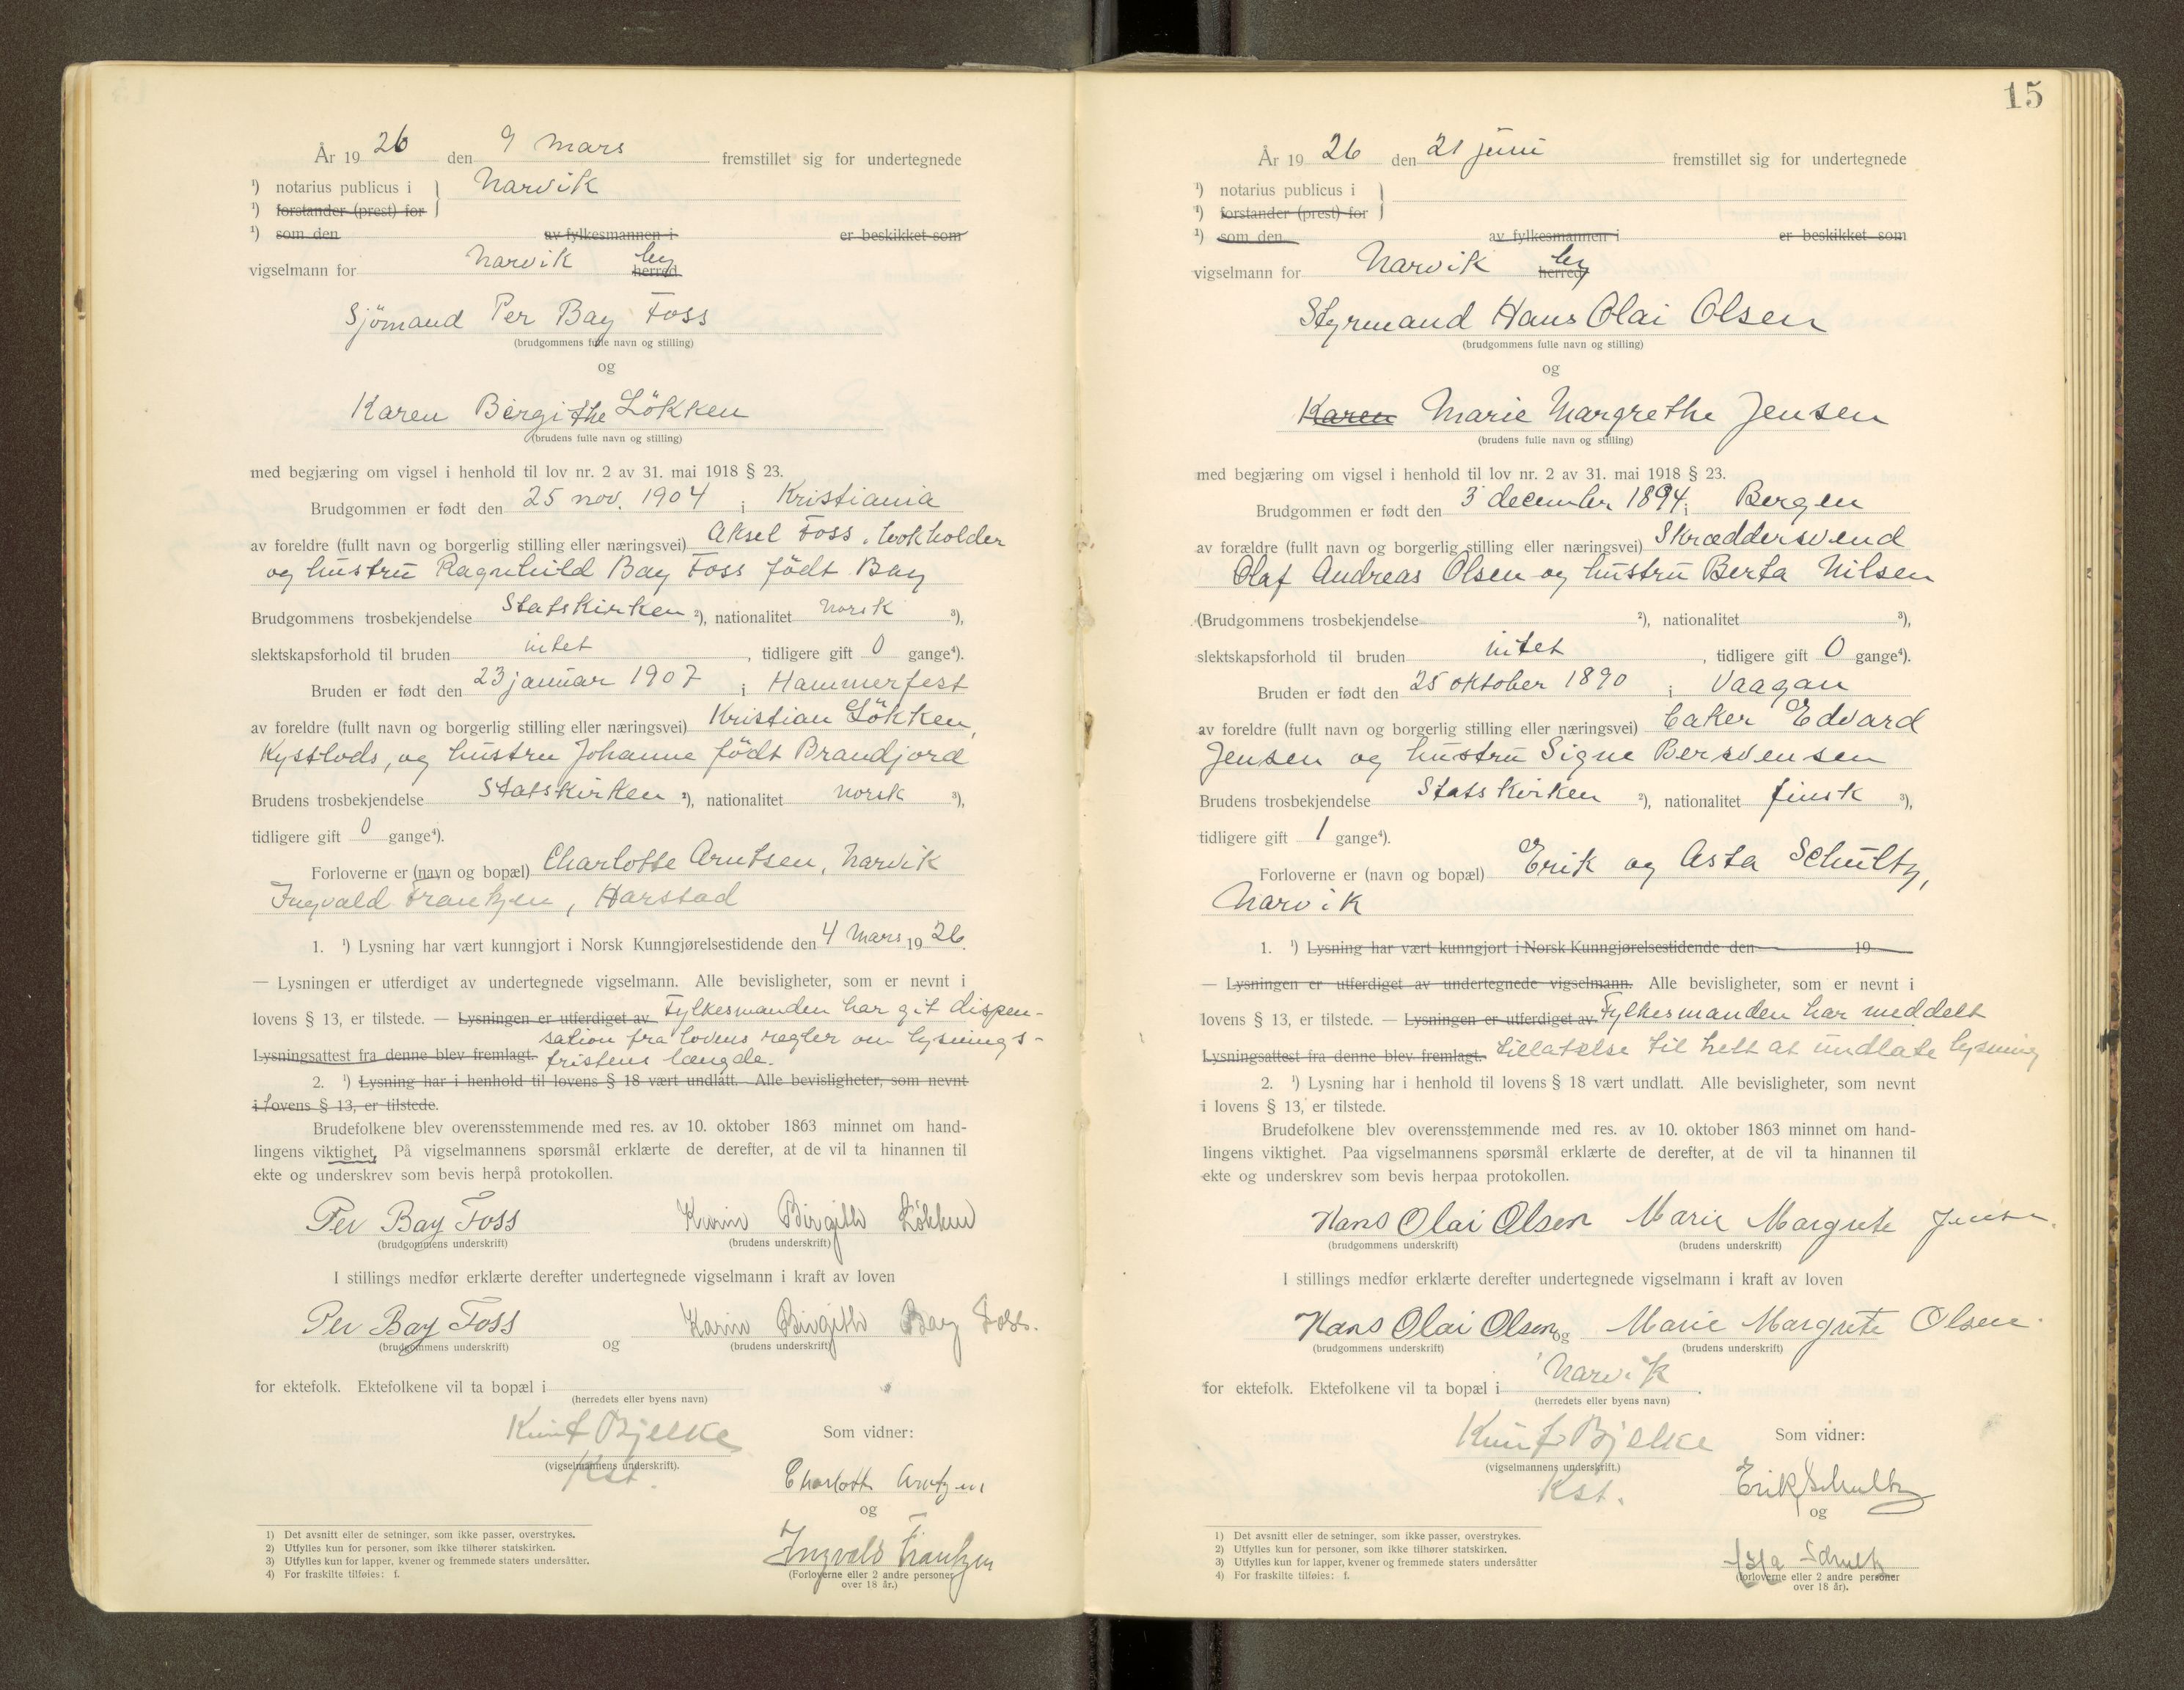 År 1926 den 9 Mars fremstillet sig for undertegnede
¹) notarius publicus i Narvik
¹) forstander (prest) for
¹) som den av fylkesmannen i er beskikket som
vigselmann for Narvik herred by
Sjömand Per Bay Foss
(brudgommens fulle navn og stilling)
og
Karen Birgithe Lökken
(brudens fulle navn og stilling)
med begjæring om vigsel i henhold til lov nr. 2 av 31. mai 1918 § 23.
Brudgommen er født den 25 nov. 1904 i Kristiania
av foreldre (fullt navn og borgerlig stilling eller næringsvei) Aksel Foss, bokholder
og hustru Ragnhild Bay Foss födt Bay
Brudgommens trosbekjendelse Statskirken ²), nationalitet norsk ³),
slektskapsforhold til bruden intet, tidligere gift 0 gange⁴).
Bruden er født den 23 januar 1907 i Hammerfest
av foreldre (fullt navn og borgerlig stilling eller næringsvei) Kristian Lökken,
Kystlods, og hustru Johanne födt Brandjord
Brudens trosbekjendelse Statskirken ²), nationalitet norsk ³),
tidligere gift 0 gange⁴).
Forloverne er (navn og bopæl) Charlotte Arntsen, Narvik
Ingvald Frantzen, Harstad
1. ¹) Lysning har vært kunngjort i Norsk Kunngjørelsestidende den 4 Mars 1926.
— Lysningen er utferdiget av undertegnede vigselmann. Alle bevisligheter, som er nevnt i
lovens § 13, er tilstede. — Lysningen er utferdiget av Fylkesmanden har git dispen-
sation fra lovens regler om lysnings-
Lysningsattest fra denne blev fremlagt. fristens længde.
2. ¹) Lysning har i henhold til lovens § 18 vært undlatt. Alle bevisligheter, som nevnt
i lovens § 13, er tilstede.
Brudefolkene blev overensstemmende med res. av 10. oktober 1863 minnet om hand-
lingens viktighet. På vigselmannens spørsmål erklærte de derefter, at de vil ta hinannen til
ekte og underskrev som bevis herpå protokollen.
Per Bay Foss Karin Birgith Løkken
(brudgommens underskrift) (brudens underskrift)
I stillings medfør erklærte derefter undertegnede vigselmann i kraft av loven
Per Bay Foss og Karin Birgith Bay Foss.
(brudgommens underskrift) (brudens underskrift)
for ektefolk. Ektefolkene vil ta bopæl i
(herredets eller byens navn)
Knut Bjelke Som vidner:
(vigselmannens underskrift).
Kst.
Charlott Arntzen
og
Ingvald Frantzen
(Forloverne eller 2 andre personer
over 18 år.)
1) Det avsnitt eller de setninger, som ikke passer, overstrykes.
2) Utfylles kun for personer, som ikke tilhører statskirken.
3) Utfylles kun for lapper, kvener og fremmede staters undersåtter.
4) For fraskilte tilføies: f.
15
År 1926 den 21 juni fremstillet sig for undertegnede
¹) notarius publicus i
¹) forstander (prest) for
¹) som den av fylkesmannen i er beskikket som
vigselmann for Narvik herred by
Styrmand Hans Olai Olsen
(brudgommens fulle navn og stilling)
og
Karen Marie Margrethe Jensen
(brudens fulle navn og stilling)
med begjæring om vigsel i henhold til lov nr. 2 av 31. mai 1918 § 23.
Brudgommen er født den 3 december 1894 i Bergen
av forældre (fullt navn og borgerlig stilling eller næringsvei) Skræddersvend
Olaf Andreas Olsen og hustru Berta Nilsen
(Brudgommens trosbekjendelse ²), nationalitet ³),
slektskapsforhold til bruden intet, tidligere gift 0 gange⁴).
Bruden er født den 25 oktober 1890 i Vaagan
av foreldre (fullt navn og borgerlig stilling eller næringsvei) baker Edvard
Jensen og hustru Signe Bersvensen
Brudens trosbekjendelse Statskirken ²), nationalitet finsk ³),
tidligere gift 1 gange⁴).
Forloverne er (navn og bopæl) Erik og Asta Schultz,
Narvik
1. ¹) Lysning har vært kunngjort i Norsk Kunngjørelsestidende den 19
— Lysningen er utferdiget av undertegnede vigselmann. Alle bevisligheter, som er nevnt i
lovens § 13, er tilstede. — Lysningen er utferdiget av Fylkesmanden har meddelt
Lysningsattest fra denne blev fremlagt. tillatelse til helt at undlate lysning
2. ¹) Lysning har i henhold til lovens § 18 vært undlatt. Alle bevisligheter, som nevnt
i lovens § 13, er tilstede.
Brudefolkene blev overensstemmende med res. av 10. oktober 1863 minnet om hand-
lingens viktighet. Paa vigselmannens spørsmål erklærte de derefter, at de vil ta hinannen til
ekte og underskrev som bevis herpaa protokollen.
Hans Olai Olsen Marie Margrete Jensen.
(brudgommens underskrift) (brudens underskrift)
I stillings medfør erklærte derefter undertegnede vigselmann i kraft av loven
Hans Olai Olsen og Marie Margrete Olsen.
(brudgommens underskrift) (brudens underskrift)
for ektefolk. Ektefolkene vil ta bopæl i Narvik.
(herredets eller byens navn)
Knut Bjelke Som vidner:
(vigselmannens underskrift.)
Kst.
Erik Schultz
og
Asta Schultz
(forloverne eller 2 andre personer
over 18 år).
1) Det avsnitt eller de setninger, som ikke passer, overstrykes.
2) Utfylles kun for personer, som ikke tilhører statskirken.
3) Utfylles kun for lapper, kvener og fremmede staters undersåtter
4) For fraskilte tilføies: f.